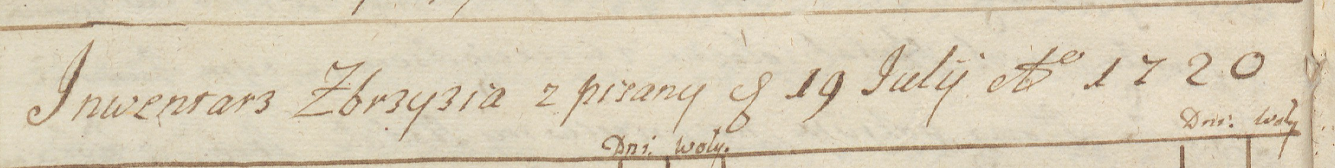 Inwentarz Zbrzyzia z pisany d 19 Julij Aº 1720
Dni: woły. Dni: woły